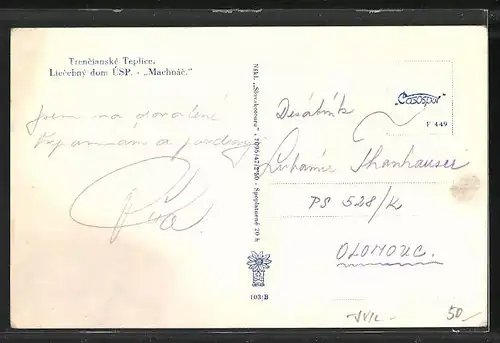 Trenčianské Teplice.
Liečebný dom ÚSP. - „Machnáč."
Jsem na dovolené
Vzpomínám a pozdravuji
Nákl. „Slovakotour"
Spoplatnené 20 h
103/B
„Časopos"
F 449
Desátník
Lubomír Thanhauser
PS 528/K
OLOMOUC.
50.-